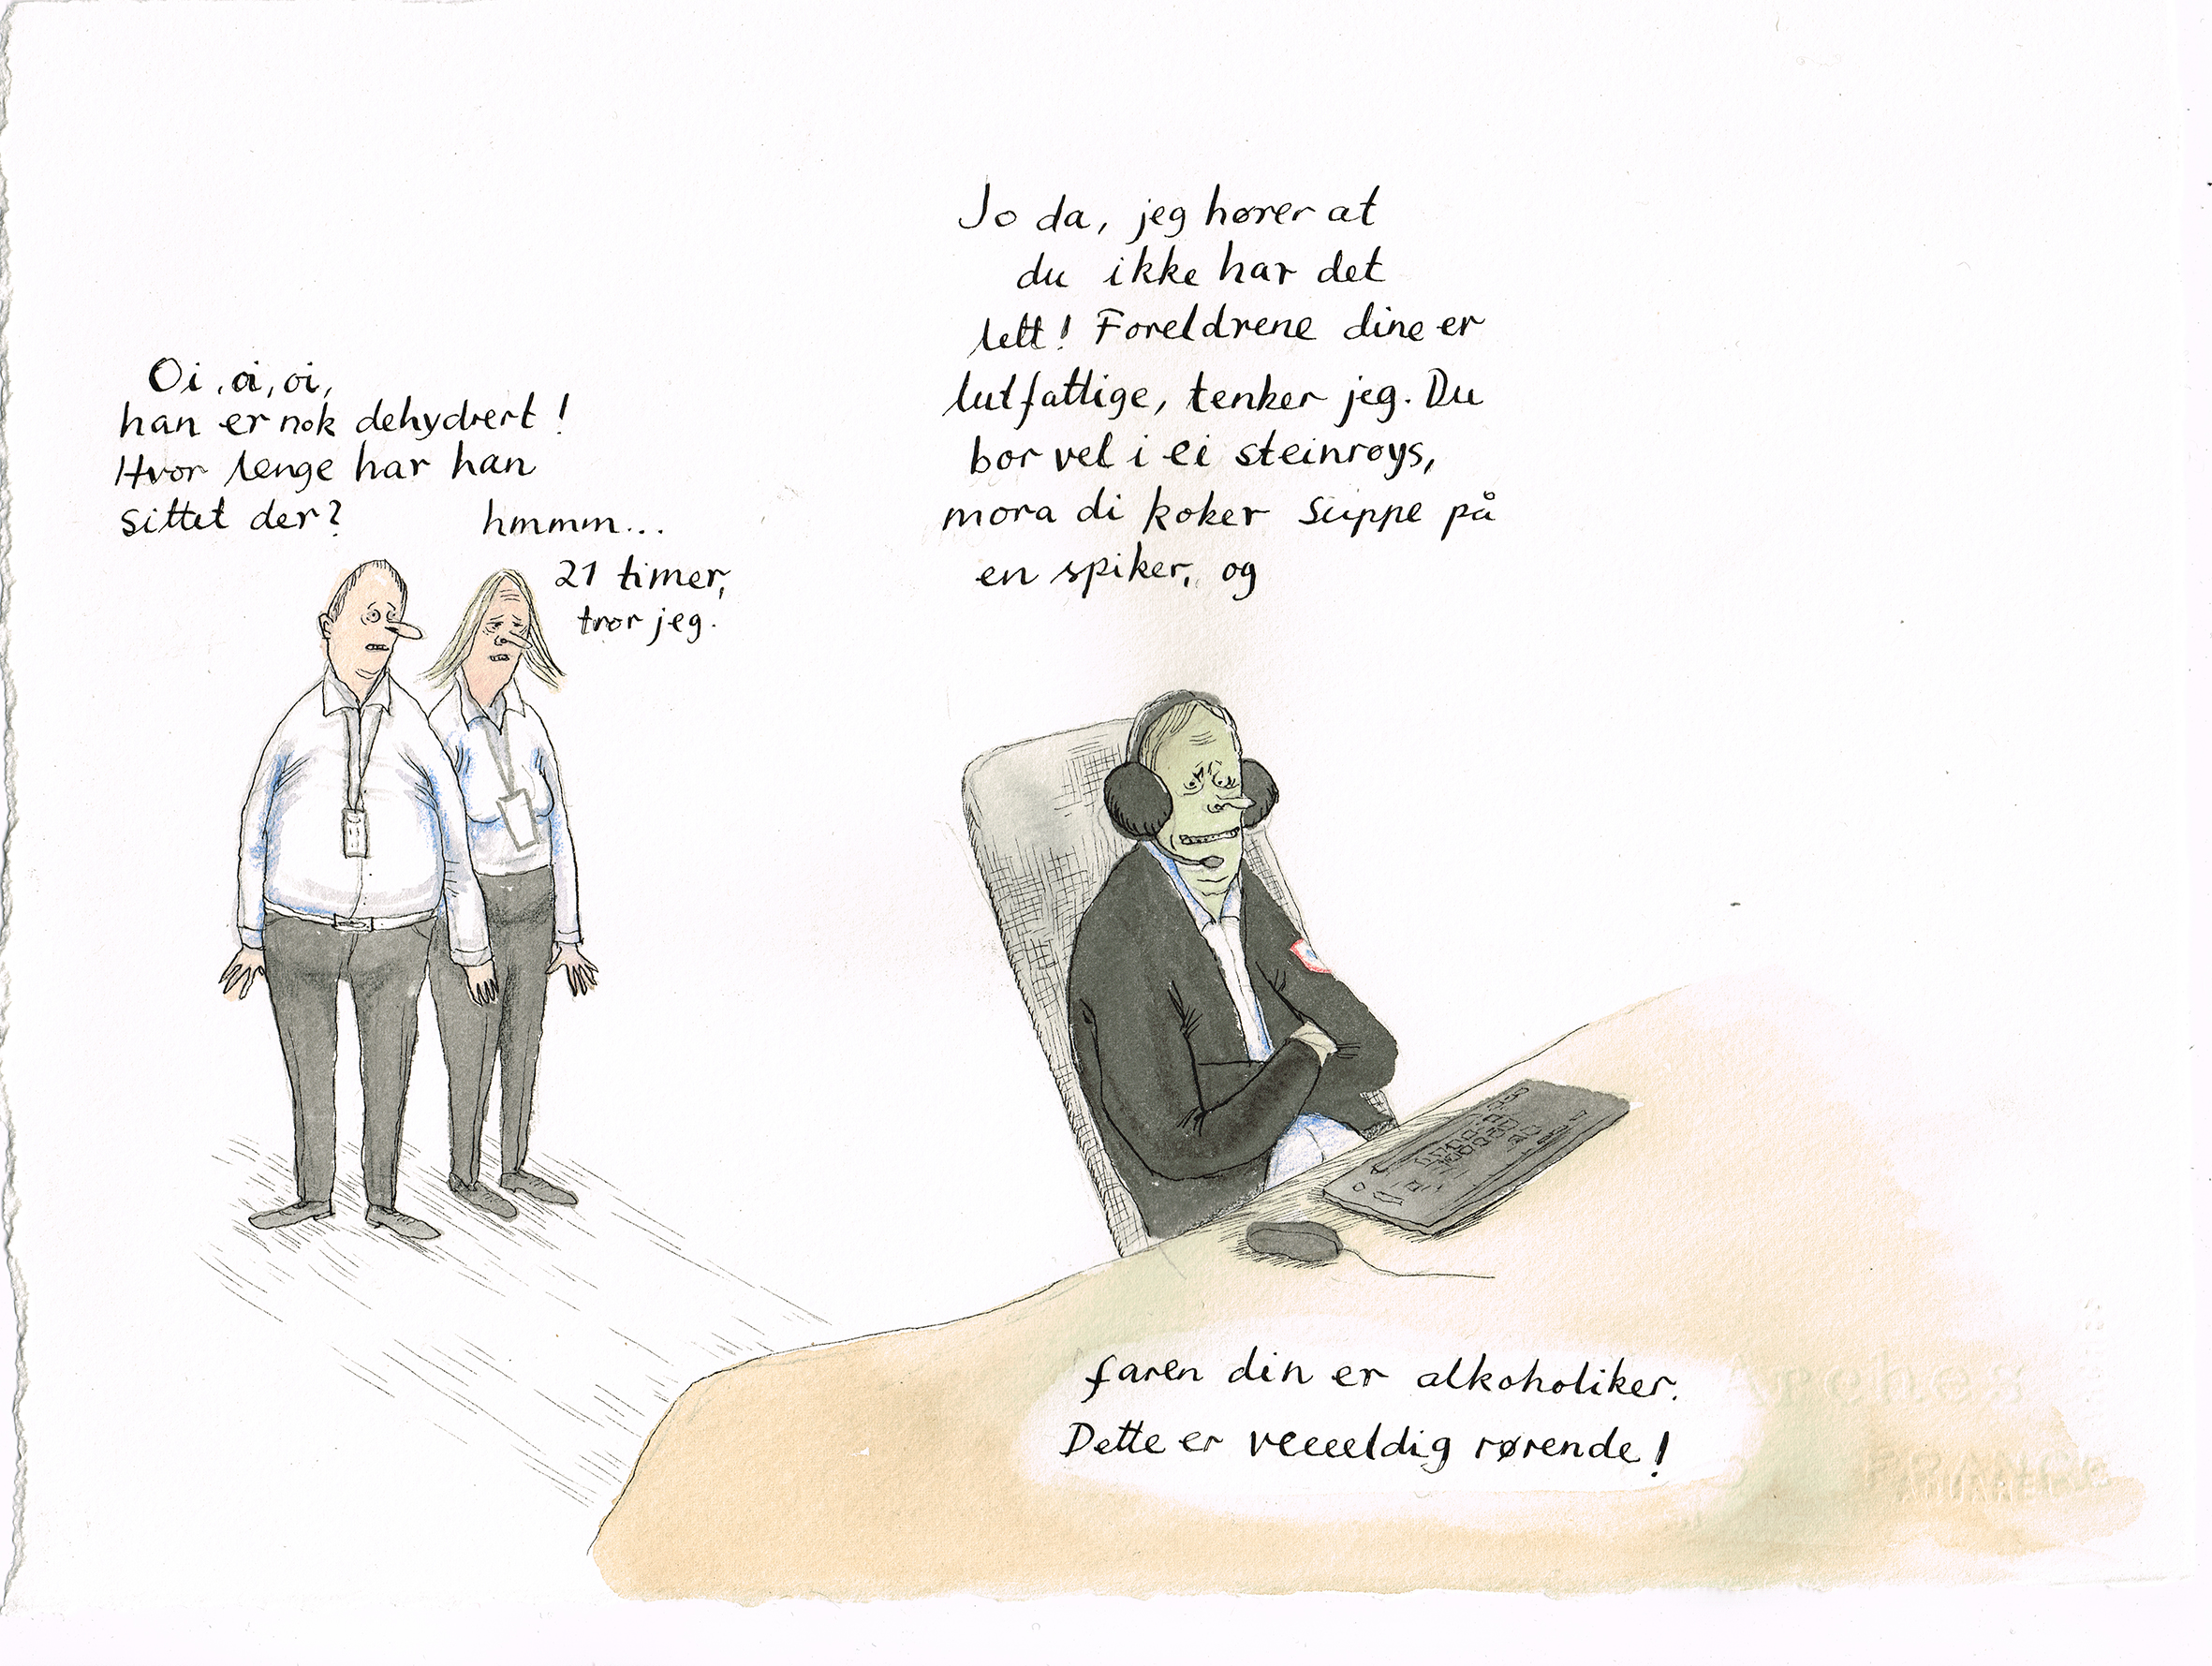 Oi, oi, oi,
han er nok dehydrert!
Hvor lenge har han
sittet der?
hmmm...
21 timer,
tror jeg.
Jo da, jeg hører at
du ikke har det
lett! Foreldrene dine er
lutfattige, tenker jeg. Du
bor vel i ei steinrøys,
mora di koker suppe på
en spiker, og
faren din er alkoholiker.
Dette er veeeeldig rørende!
Arches
FRANCE